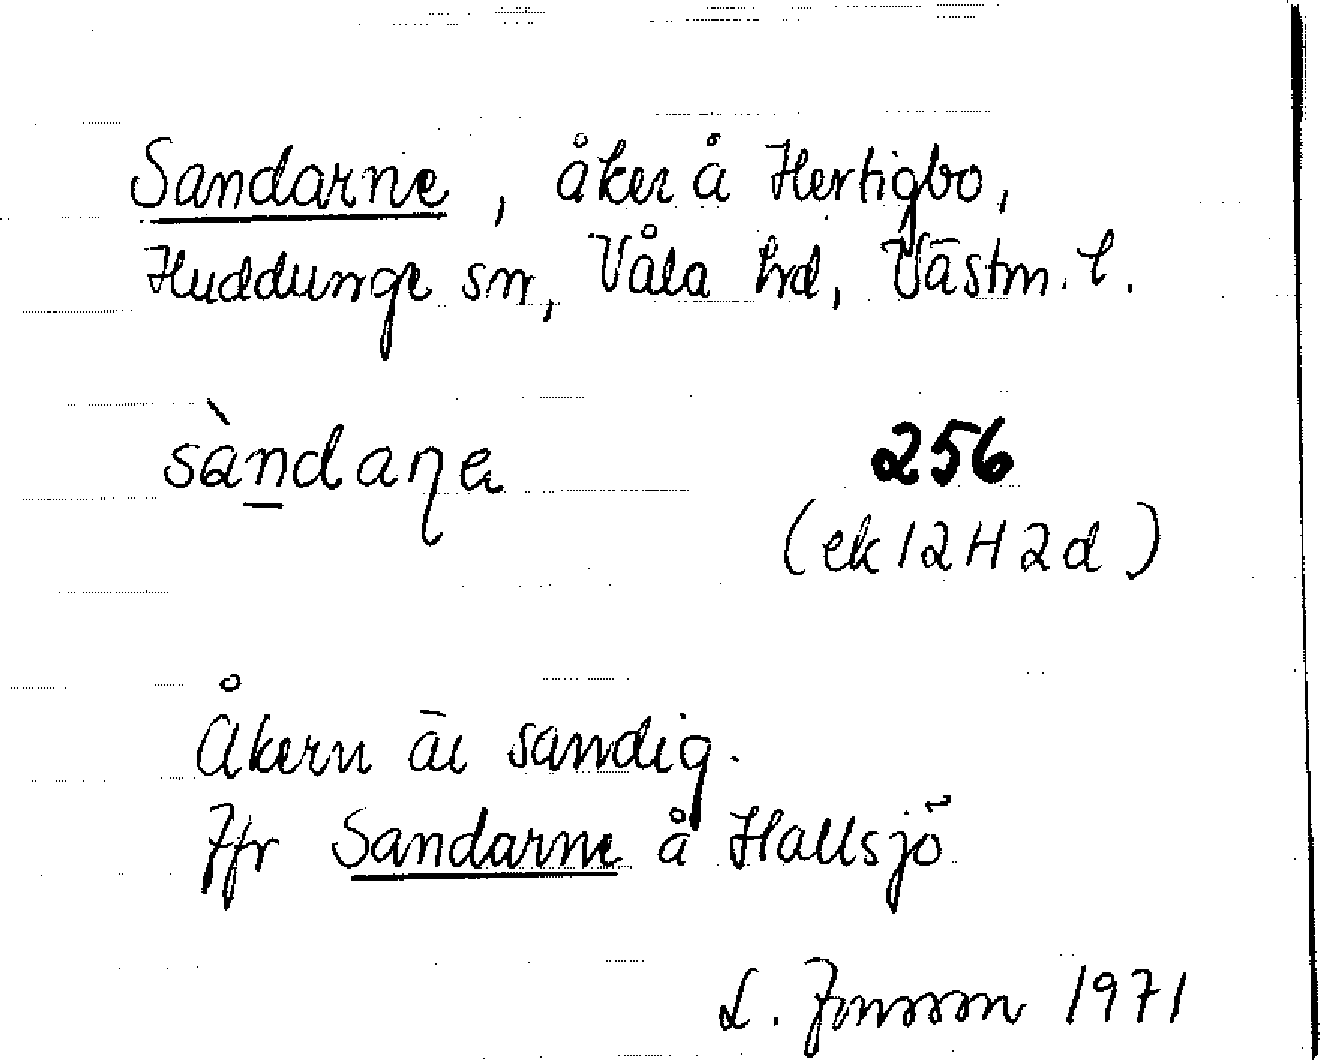 Sandarne, åker å Hertigbo,
Huddunge sn, Våla hd, Västm. l.
sàndaɳa
256
(ek 12H2d)
Åkern är sandig.
Jfr Sandarne å Hallsjö
L. Jonsson 1971